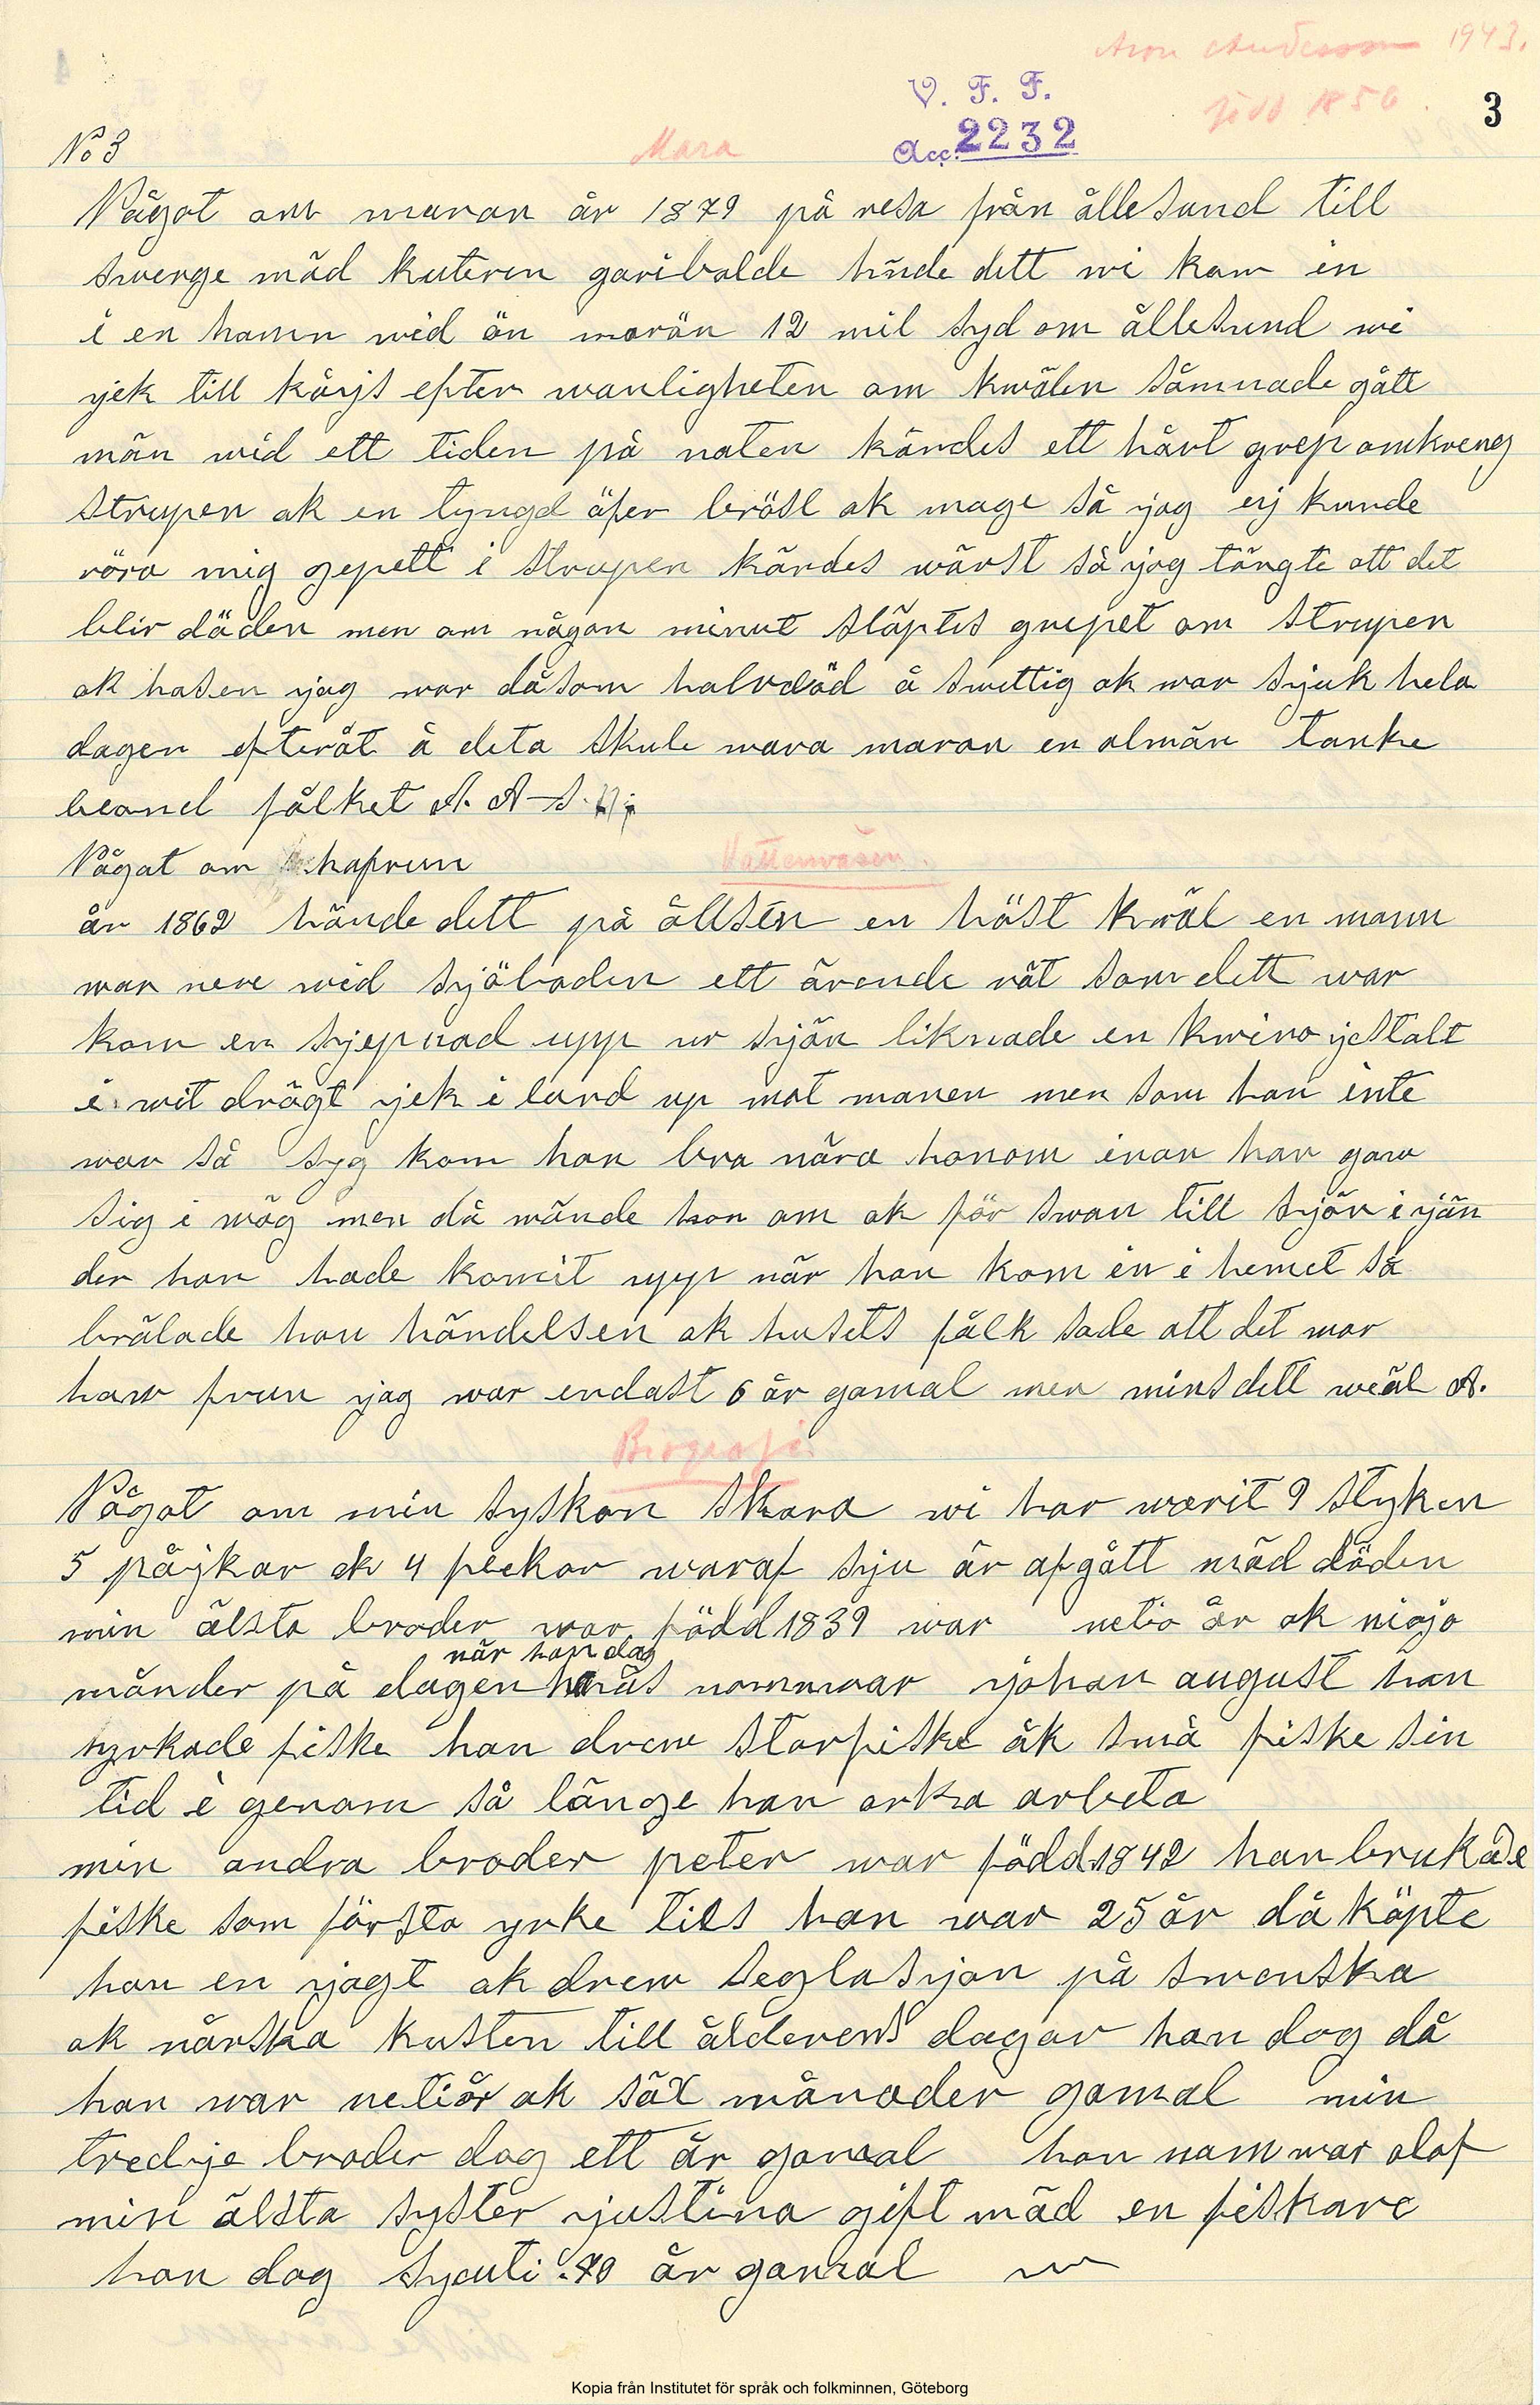 Aron Andersson 1943.
V. F. F. född 1856. 3
No 3 Mara Acc. 2232
Något om maran år 1879 på resa från ållesund till
swerge mäd kuteren garibalde hände dett wi kom in
i en hamn wid ön morön 12 mil syd om ållesund wi
gjek till kårjs efter wanligheten om kwälen sämnade gått
män wid ett tiden på naten kändes ett hårt grep omkreng
strupen ok en tyngd äfer bröst ok mage så jag ej kunde
röra mig gepett i strupen kändes wärst så jag tängte att det
blir däden men om någon minut släptes grepet om strupen
ok hasen jag war då som halvdöd å swettig ok war sjuk hela
dagen efteråt å deta skule wara maran en almän tanke
beand fålket A. A-S.
Något om hafrun Vattenväsen.
år 1862 hände dett på ållsön en höst kwäl en mann
war nere wid sjöboden ett ärende rät som dett war
kom en sjepnad upp ur sjön liknade en kwino jestalt
i wit drägt gjek i land up mot manen men som han inte
war så syg kom hon bra nära honom inan han gaw
sig i wäg men då wände hon om ok för swan till sjön i jän
der hon hade komit upp när han kom in i hemet så
brälade han händelsen ok husets fålk sade att det war
haw frun jag war endast 6 år gamal men mins dett wäl A.
Biografi
Något om min syskon skara wi har warit 9 styken
5 påjkar ok 4 flekor waraf sju är afgått mäd döden
min älsta broder war född 1839 war netio år ok niojo
när han dog
månder på dagen hans nammwar johan august han
syrkade fiske han drew storfiske åk små fiske sin
tid i genom så länge han orka arbeta
min andra broder peter war född 1842 han brukade
fiske som första yrke tils han war 25 år då köpte
han en jagt ok drew seglasjon på swenska
ok nårska kusten till ålderens dagar han dog då
han war netiår ok säx månader gamal min
tredje broder dog ett år gamal han nam war olof
min älsta syster justina gift mäd en fiskare
hon dog syuti 70 år gamal
Kopia från Institutet för språk och folkminnen, Göteborg